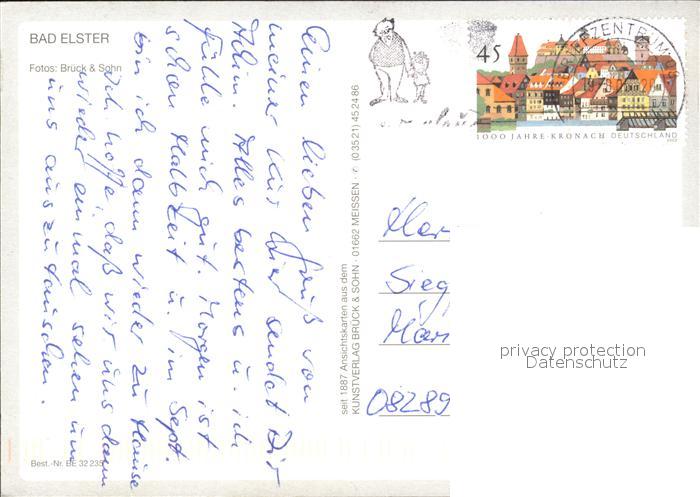 BAD ELSTER
Fotos: Brück & Sohn
Einen lieben Gruß von
meiner Kur hier sendet Dir
Alles bestens u. ich
fühle mich gut. Morgen ist
schon Halbzeit u. im Sept.
bin ich dann wieder zu Hause
Ich hoffe, daß wir uns dann
wieder einmal sehen um
uns auszutauschen.
Best.-Nr. BE 32 235
seit 1887 Ansichtskarten aus dem
KUNSTVERLAG BRÜCK & SOHN · 01662 MEISSEN · ✆ (0 35 21) 45 24 86
45
BRIEFZENTRUM
1000 JAHRE · KRONACH DEUTSCHLAND
Sieg
08289
privacy protection
Datenschutz